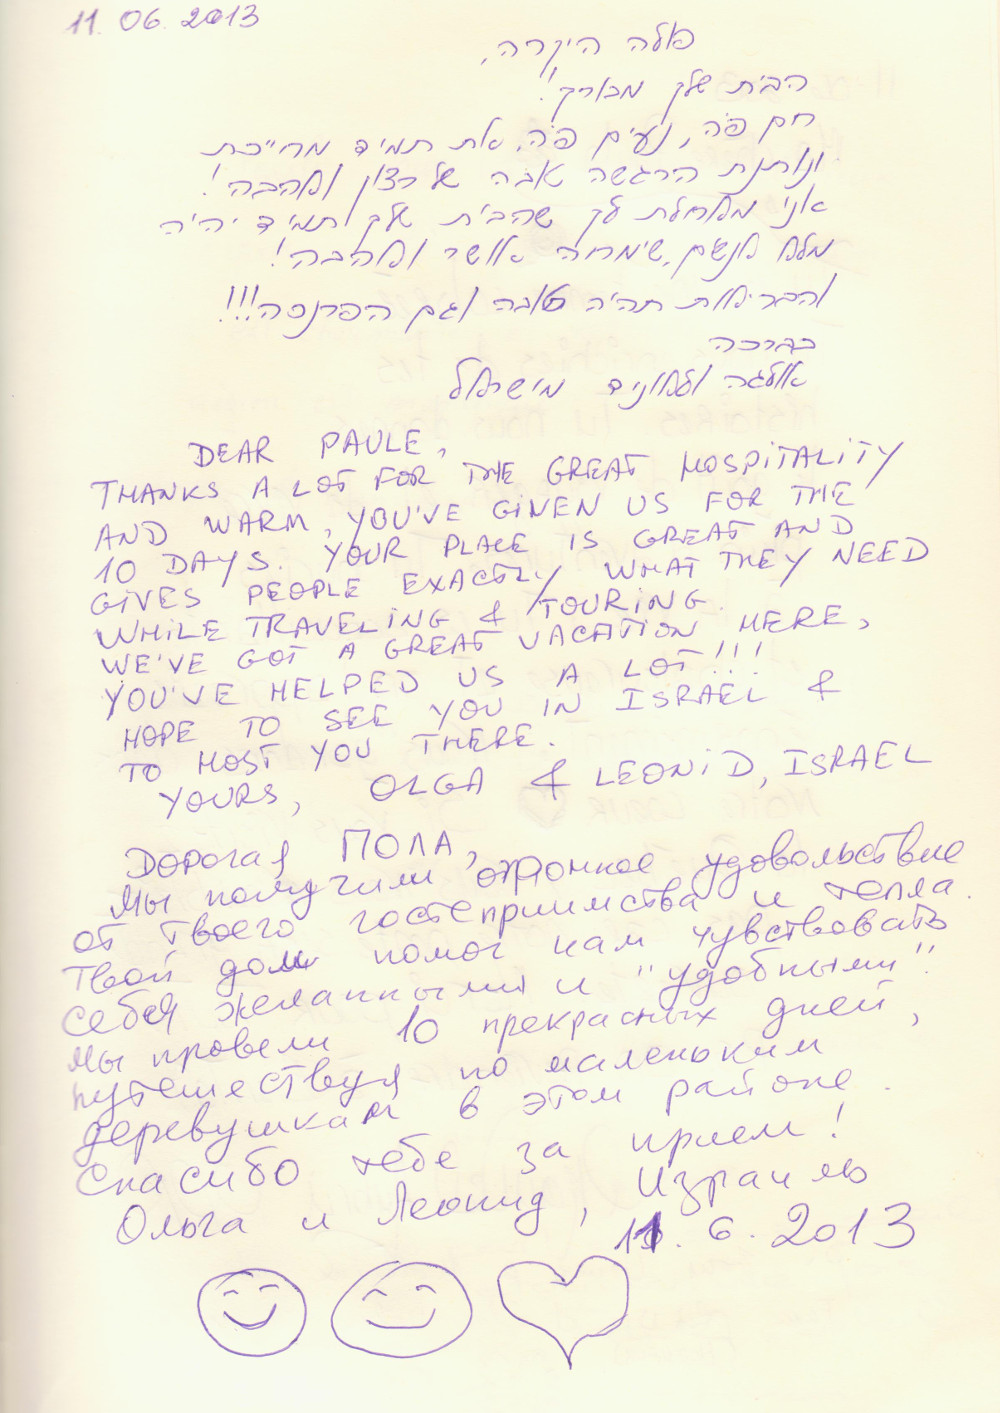 11.06.2013
פאלה היקרה,
הבית שלך מבורך!
חם פה, נעים פה, את תמיד מחייכת
ונותנת הרגשה טובה של רצון ואהבה!
אני מאחלת לך שהבית שלך תמיד יהיה
מלא אנשים, שימחה אושר ואהבה!
והבריאות תהיה טובה וגם הפרנסה!!!
בברכה
אולגה ולאוניד מישראל
DEAR PAULE,
THANKS A LOT FOR THE GREAT HOSPITALITY
AND WARM, YOU'VE GIVEN US FOR THE
10 DAYS. YOUR PLACE IS GREAT AND
GIVES PEOPLE EXACTLY WHAT THEY NEED
WHILE TRAVELING & TOURING.
WE'VE GOT A GREAT VACATION HERE,
YOU'VE HELPED US A LOT!!!
HOPE TO SEE YOU IN ISRAEL &
TO HOST YOU THERE.
YOURS, OLGA & LEONID, ISRAEL
Дорогая ПОЛА,
Мы получили огромное удовольствие
от твоего гостеприимства и тепла.
Твой дом помог нам чувствовать
себя желанными и "удобными".
Мы провели 10 прекрасных дней,
путешествуя по маленьким
деревушкам в этом районе.
Спасибо тебе за прием!
Ольга и Леонид, Израиль
11.6.2013